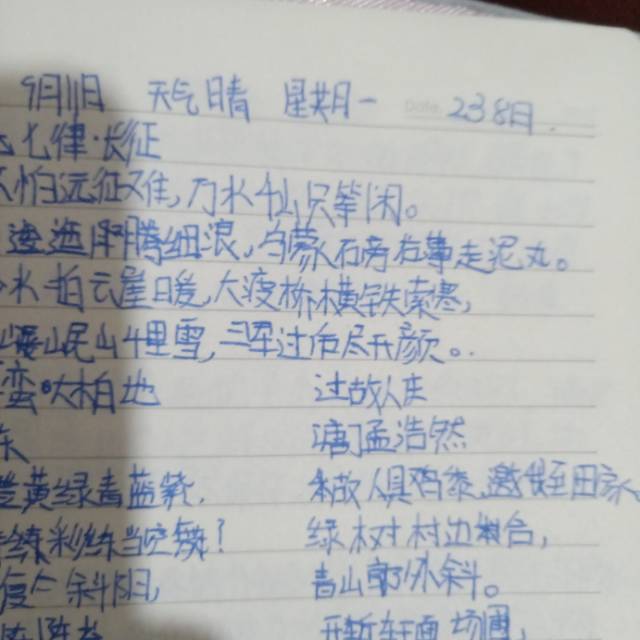 天气晴 星期一 Date 23:8月
七律·长征
怕远征难,万水千山只等闲。
逶迤腾细浪,乌蒙磅礴走泥丸。
水拍云崖暖,大渡桥横铁索寒,
岷山千里雪,三军过后尽开颜。
蛮·大柏地 过故人庄
唐孟浩然
黄绿青蓝紫, 故人具鸡黍,邀我至田家
当空舞! 绿树村边合,
斜阳, 青山郭外斜。
开轩面场圃,